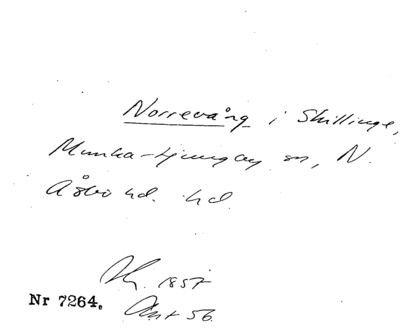 Norrevång i Skillinge,
Munka-Ljungby sn, N.
Åsbo hd. hd
1857
Nr 7264. Akt 56.